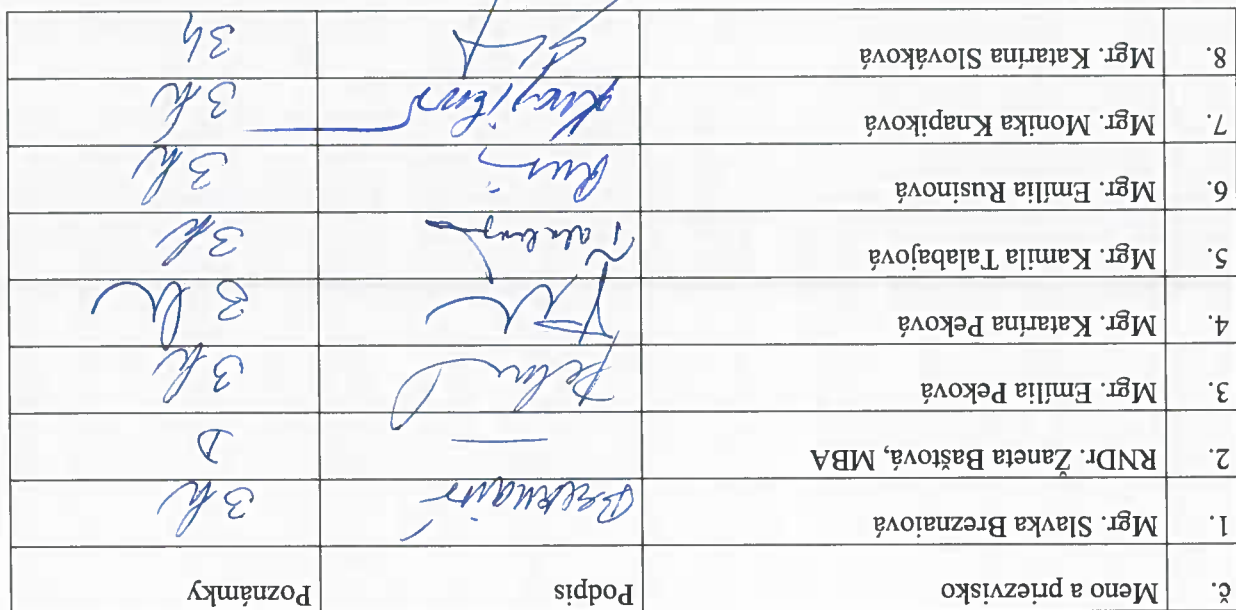 č. Meno a priezvisko Podpis Poznámky
1. Mgr. Slavka Breznaiová Breznaiová 3h
2. RNDr. Žaneta Baštová, MBA — D
3. Mgr. Emília Peková 3h
4. Mgr. Katarína Peková 3h
5. Mgr. Kamila Talabajová 3h
6. Mgr. Emília Rusinová 3h
7. Mgr. Monika Knapiková 3h
8. Mgr. Katarína Slováková 3h